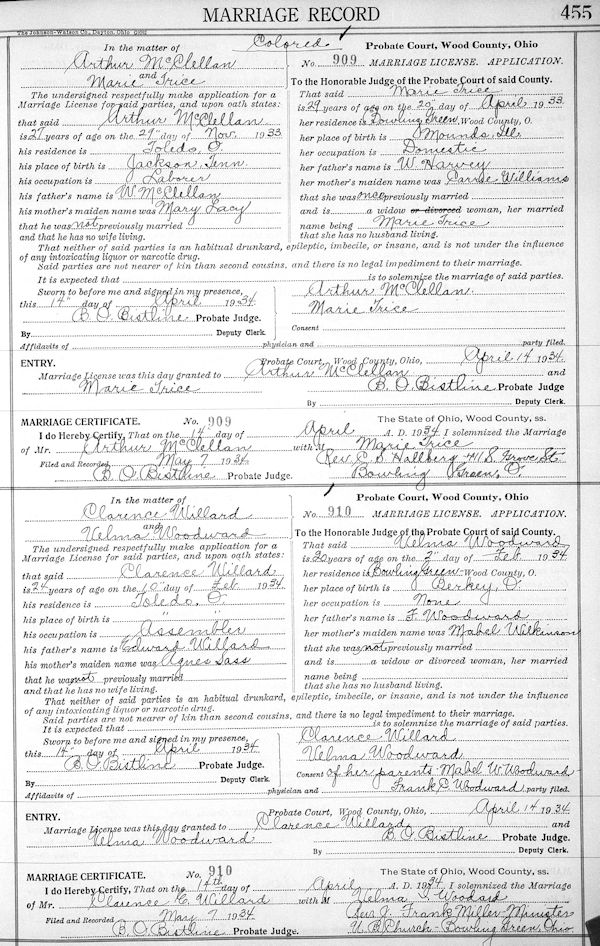 MARRIAGE RECORD 455
The Johnson-Watson Co., Dayton, Ohio
In the matter of Colored
Arthur McClellan
and
Marie Trice
The undersigned respectfully make application for a
Marriage License for said parties, and upon oath states:
that said Arthur McClellan
is 27 years of age on the 29" day of Nov. 1933
his residence is Toledo, O.
his place of birth is Jackson, Tenn.
his occupation is Laborer
his father's name is W. McClellan
his mother's maiden name was Mary Lacy
that he was not previously married
and that he has no wife living.
Probate Court, Wood County, Ohio
No. 909 MARRIAGE LICENSE. APPLICATION.
To the Honorable Judge of the Probate Court of said County.
That said Marie Trice
is 29 years of age on the 20" day of April 1933
her residence is Bowling Green, Wood County, O.
her place of birth is Mounds, Ill.
her occupation is Domestic
her father's name is W. Harvey
her mother's maiden name was Carrie Williams
that she was once previously married
and is a widow or divorced woman, her married
name being Marie Trice
that she has no husband living.
That neither of said parties is an habitual drunkard, epileptic, imbecile, or insane, and is not under the influence
of any intoxicating liquor or narcotic drug.
Said parties are not nearer of kin than second cousins, and there is no legal impediment to their marriage.
It is expected that is to solemnize the marriage of said parties.
Sworn to before me and signed in my presence,
this 14" day of April 1934
B. O. Bistline Probate Judge.
By Deputy Clerk.
Arthur McClellan.
Marie Trice
Consent
Affidavits of physician and party filed.
ENTRY. Probate Court, Wood County, Ohio, April 14 1934.
Marriage License was this day granted to Arthur McClellan and
Marie Trice B. O. Bistline Probate Judge
By Deputy Clerk.
MARRIAGE CERTIFICATE. No. 909 The State of Ohio, Wood County, ss.
I do Hereby Certify, That on the 14" day of April A. D. 1934 I solemnized the Marriage
of Mr. Arthur McClellan with M Marie Trice
Filed and Recorded May 7 1934. Rev. C. S. Hallberg 411 S. Grove St.
B. O. Bistline Probate Judge. Bowling Green, O.
In the matter of
Clarence Willard
and
Velma Woodward
The undersigned respectfully make application for a
Marriage License for said parties, and upon oath states:
that said Clarence Willard
is 24 years of age on the 10" day of Feb. 1934
his residence is Toledo, O.
his place of birth is " "
his occupation is Assembler
his father's name is Edward Willard
his mother's maiden name was Agnes Sass
that he was not previously married
and that he has no wife living.
Probate Court, Wood County, Ohio
No. 910 MARRIAGE LICENSE. APPLICATION.
To the Honorable Judge of the Probate Court of said County.
That said Velma Woodward
is 20 years of age on the 2" day of Feb. 1934
her residence is Bowling Green Wood County, O.
her place of birth is Berkey, O.
her occupation is None
her father's name is F. Woodward
her mother's maiden name was Mabel Wilkinson
that she was not previously married
and is a widow or divorced woman, her married
name being
that she has no husband living.
That neither of said parties is an habitual drunkard, epileptic, imbecile, or insane, and is not under the influence
of any intoxicating liquor or narcotic drug.
Said parties are not nearer of kin than second cousins, and there is no legal impediment to their marriage.
It is expected that is to solemnize the marriage of said parties.
Sworn to before me and signed in my presence,
this 14" day of April 1934
B. O. Bistline Probate Judge.
By Deputy Clerk.
Clarence Willard
Velma Woodward
Consent of her parents-Mabel W. Woodward
Affidavits of physician and Frank C. Woodward party filed.
ENTRY. Probate Court, Wood County, Ohio, April 14 1934
Marriage License was this day granted to Clarence Willard and
Velma Woodward B. O. Bistline Probate Judge.
By Deputy Clerk.
MARRIAGE CERTIFICATE. No. 910 The State of Ohio, Wood County, ss.
I do Hereby Certify, That on the 14th day of April A. D. 1934 I solemnized the Marriage
of Mr. Clarence C. Willard with M Velma Woodard
Filed and Recorded May 7 1934 Rev. J. Frank Miller Minister
B. O. Bistline Probate Judge. U. B. Church-Bowling Green, Ohio